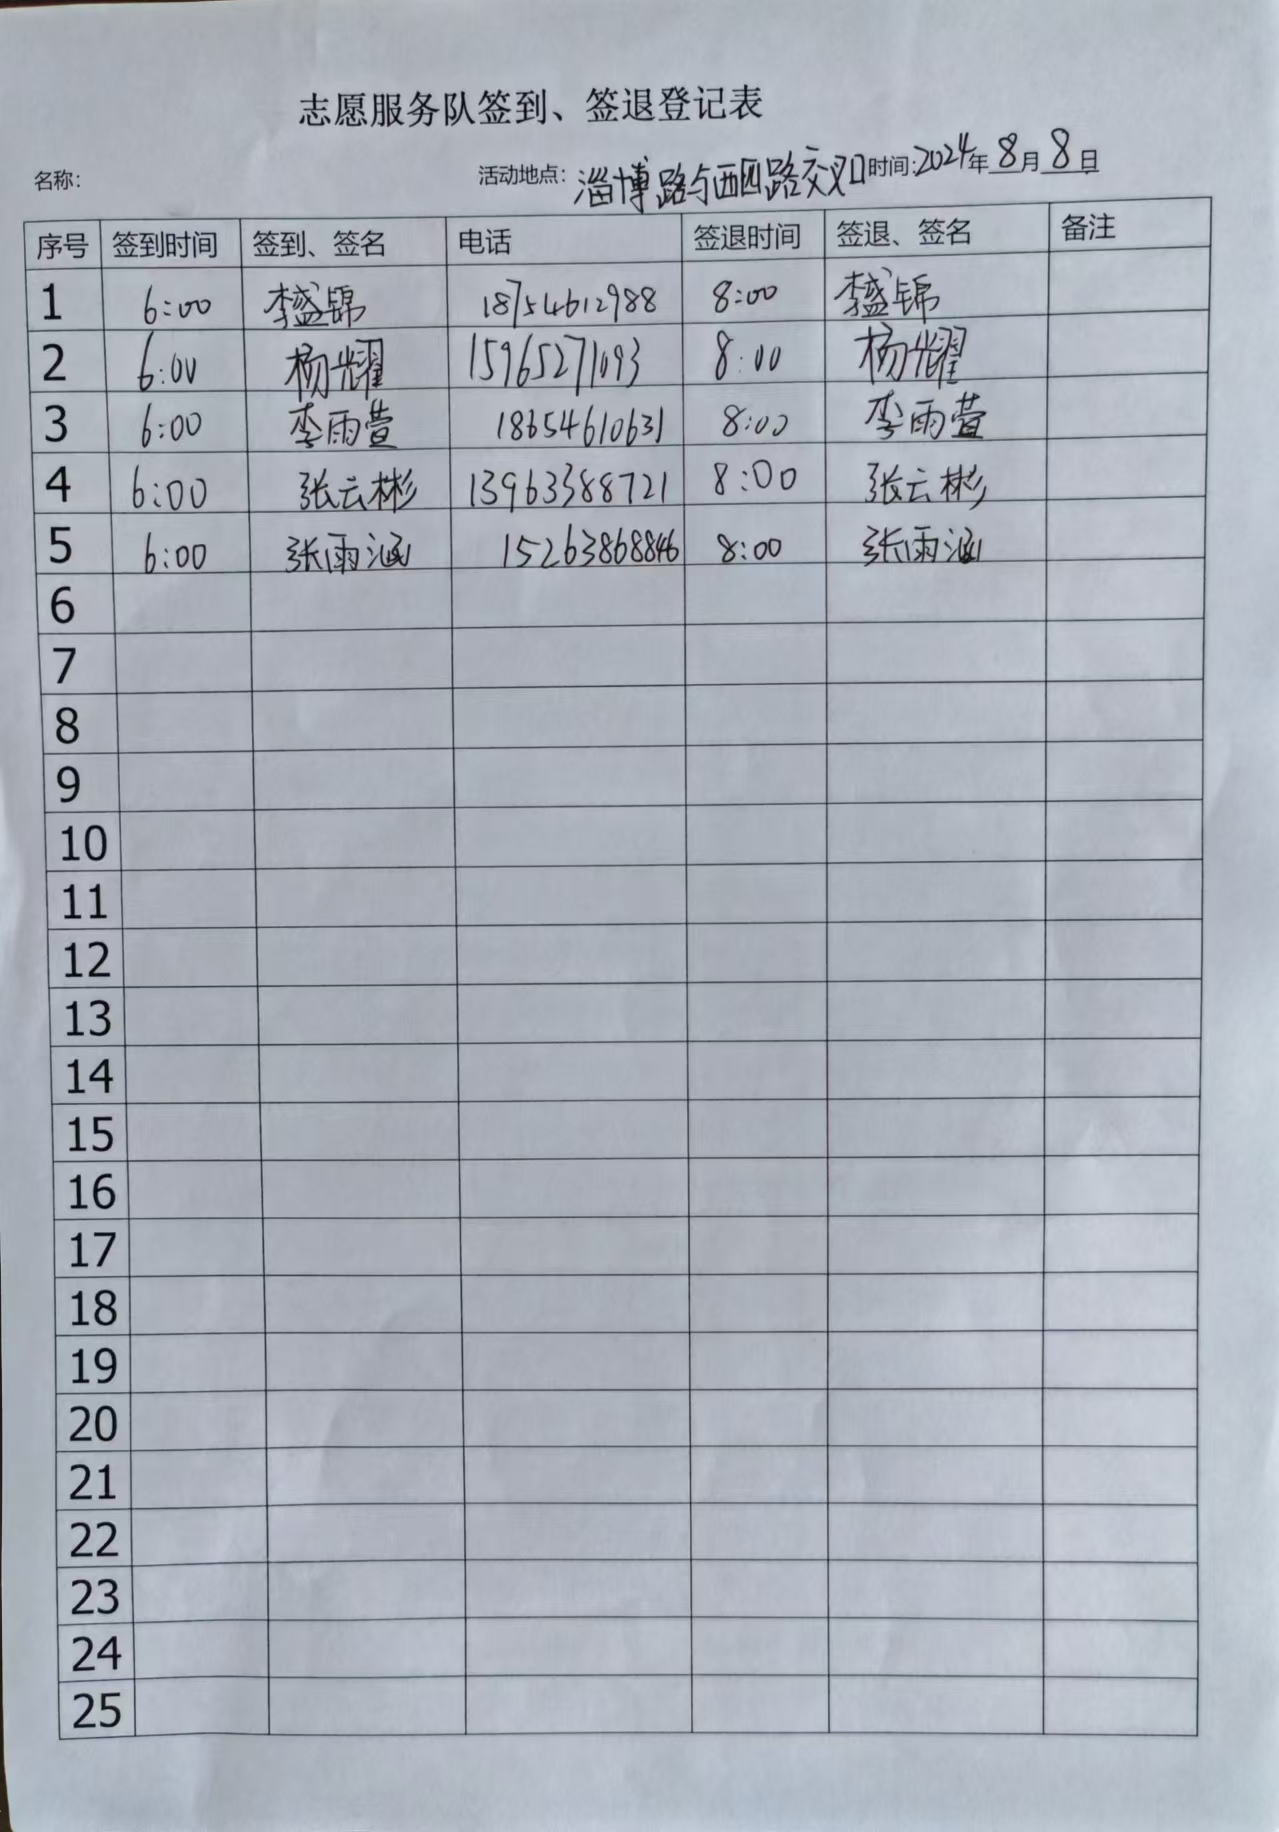 志愿服务队签到、签退登记表
名称： 活动地点：淄博路与西四路交叉口 时间：2024年8月8日
序号 签到时间 签到、签名 电话 签退时间 签退、签名 备注
1 6:00 李盛锦 18754612988 8:00 李盛锦
2 6:00 杨耀 15965271093 8:00 杨耀
3 6:00 李雨萱 18654610631 8:00 李雨萱
4 6:00 张云彬 13963388721 8:00 张云彬
5 6:00 张雨涵 15263868846 8:00 张雨涵
6
7
8
9
10
11
12
13
14
15
16
17
18
19
20
21
22
23
24
25